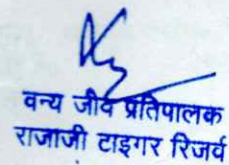 वन्य जीव प्रतिपालक
राजाजी टाइगर रिजर्व